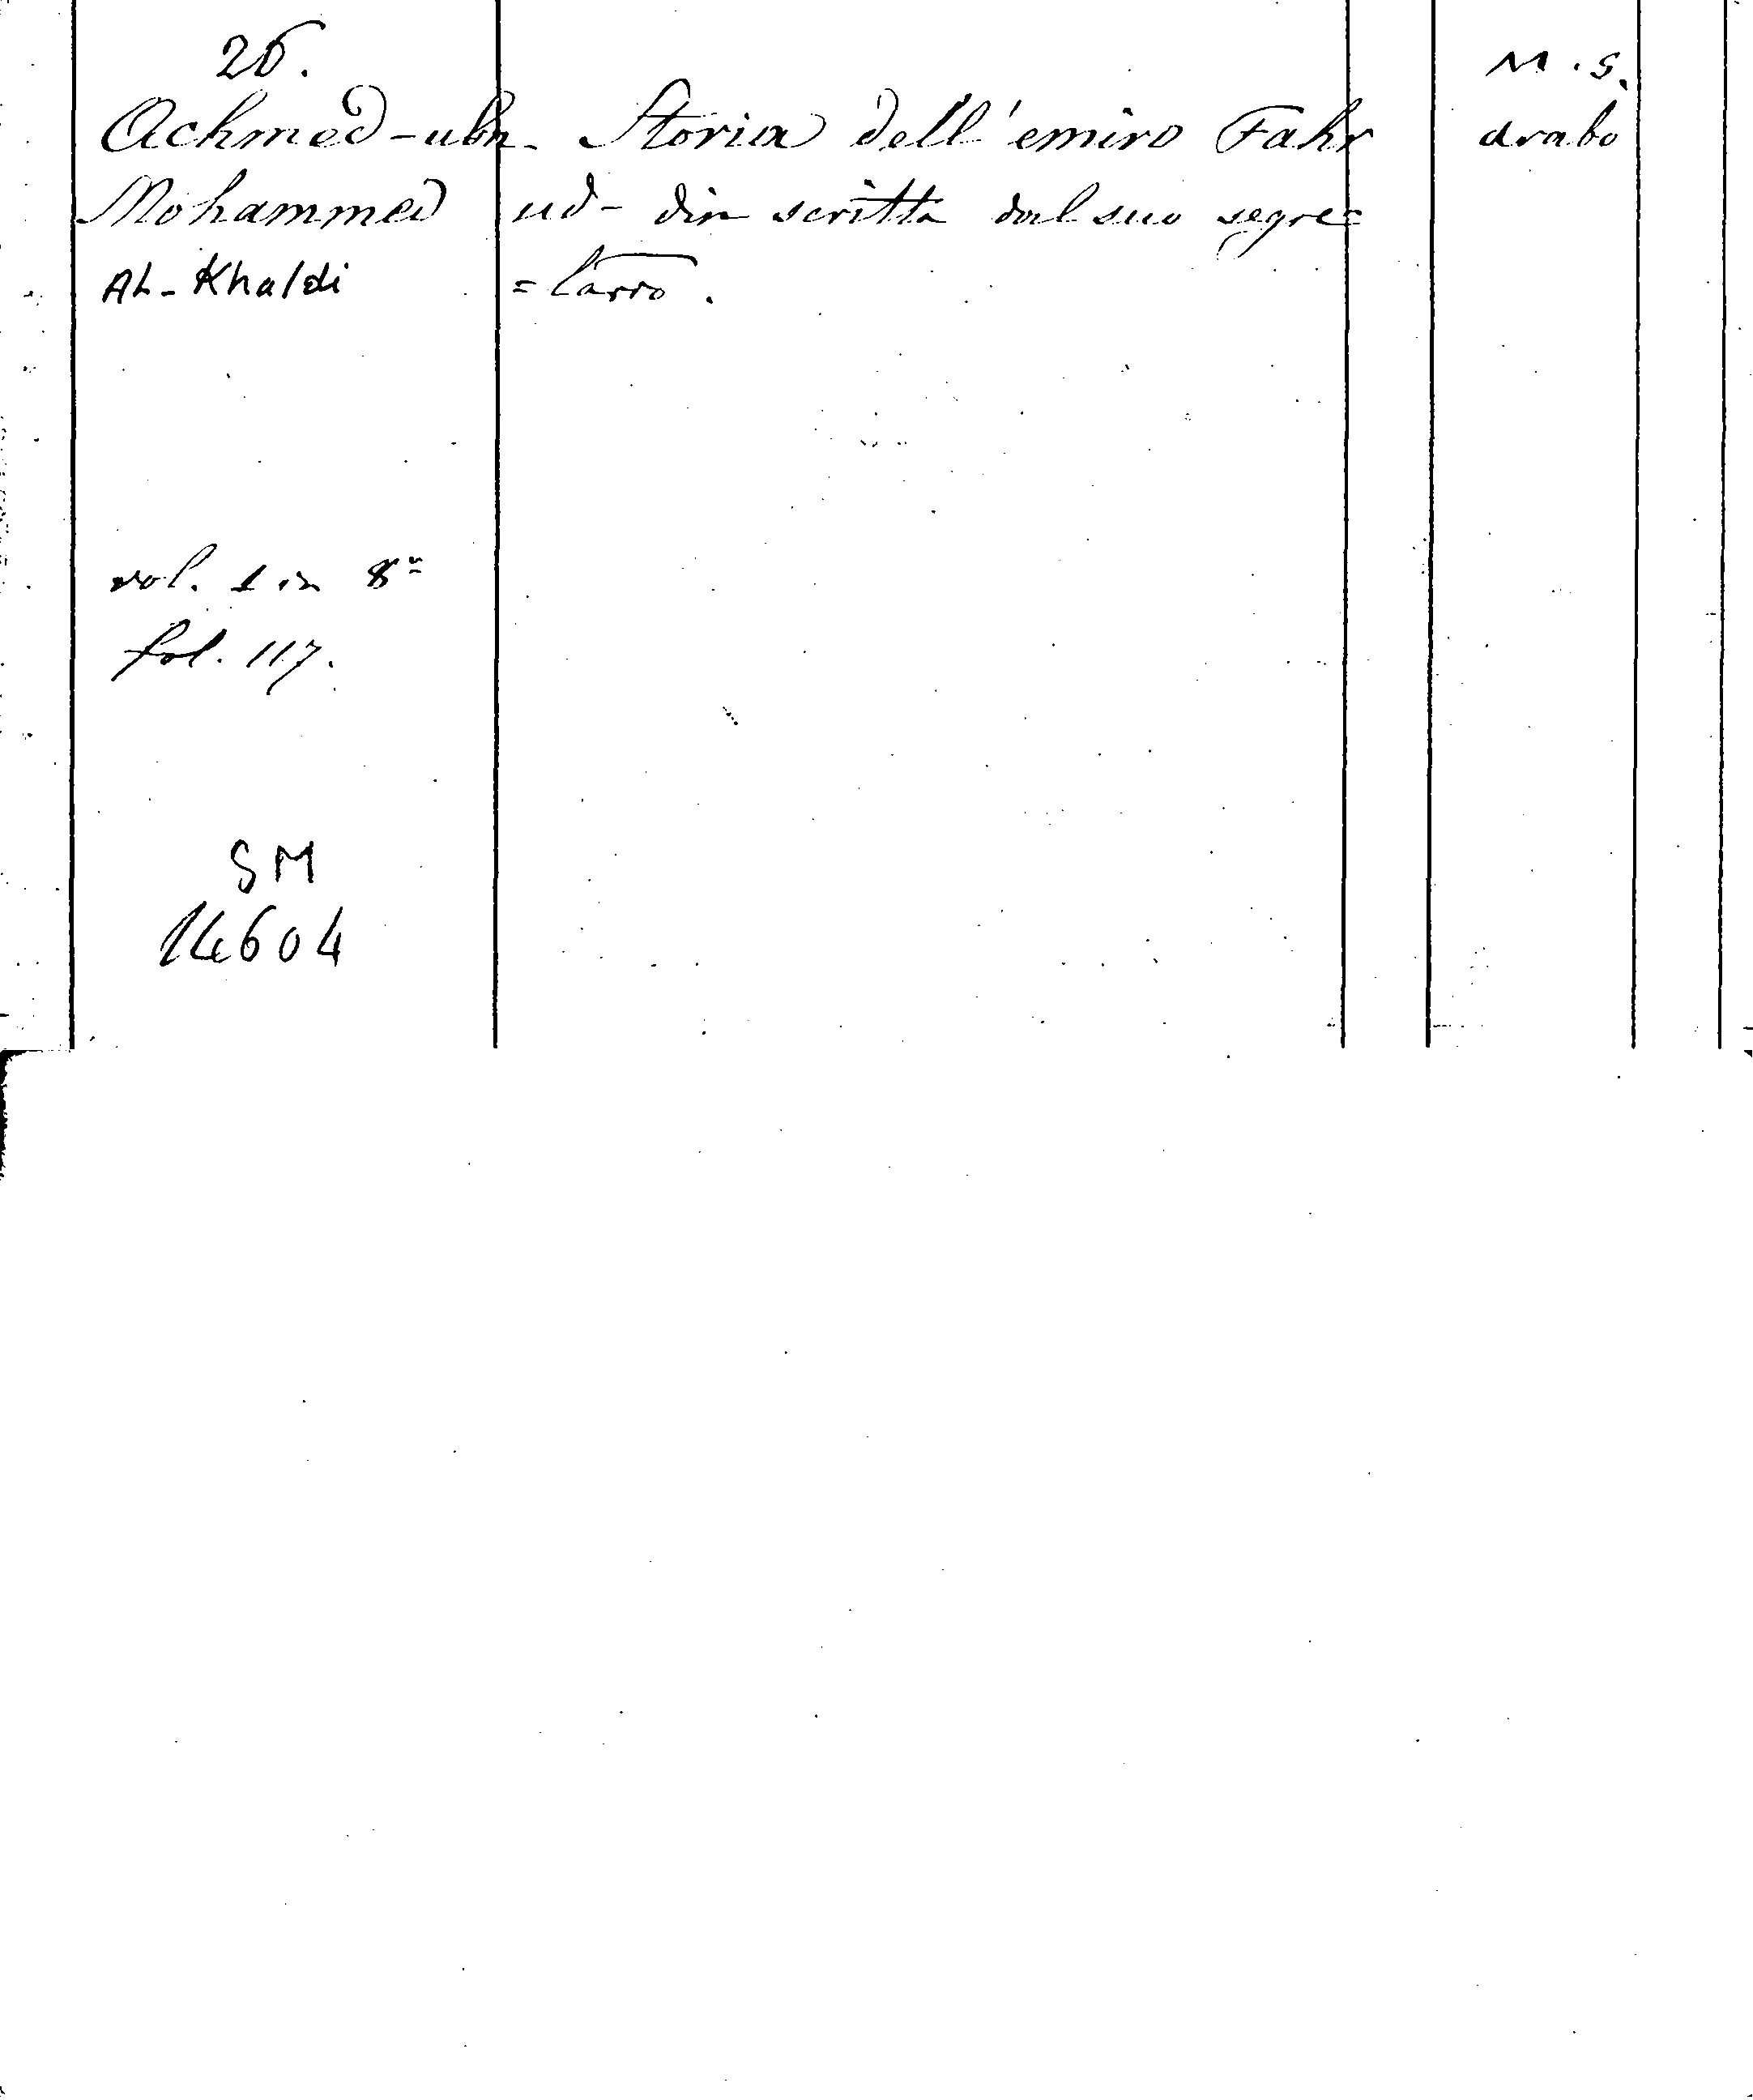 26.
M.S.
Achmed-ubn- Storia dell'emiro Fahr
arabo
Mohammed ud-din scritta dal suo segre=
AL-Khaldi =tario.
vol. 1 in 8º
fol. 117.
SM
14604